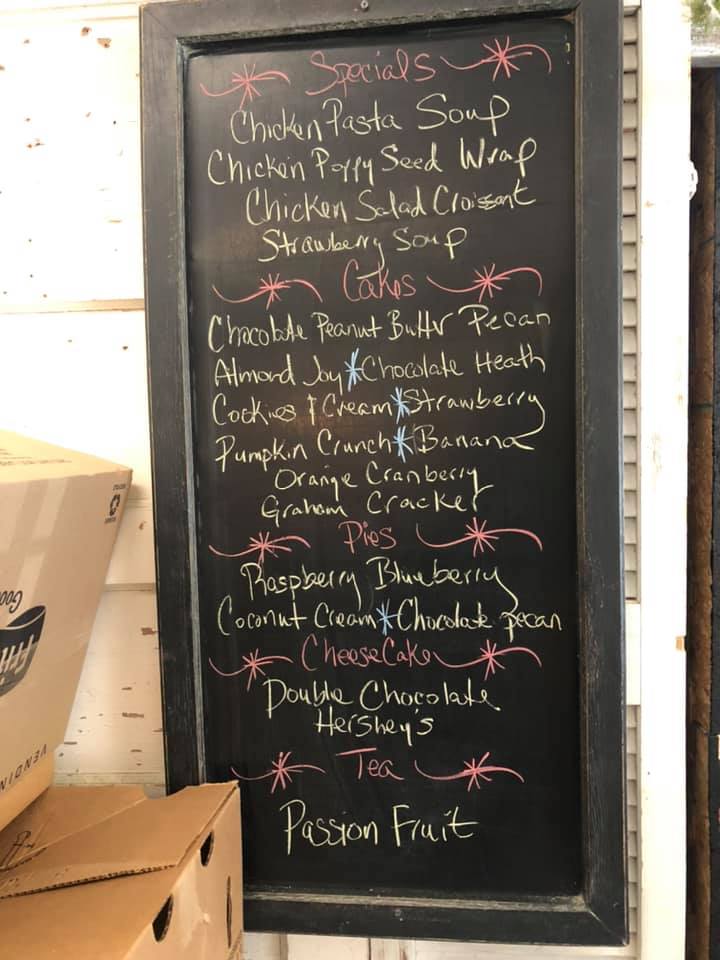 Specials
Chicken Pasta Soup
Chicken Poppy Seed Wrap
Chicken Salad Croissant
Strawberry Soup
Cakes
Chocolate Peanut Butter Pecan
Almond Joy * Chocolate Heath
Cookies & Cream * Strawberry
Pumpkin Crunch * Banana
Orange Cranberry
Graham Cracker
Pies
Raspberry Blueberry
Coconut Cream * Chocolate pecan
CheeseCake
Double Chocolate
Hershey's
Tea
Passion Fruit